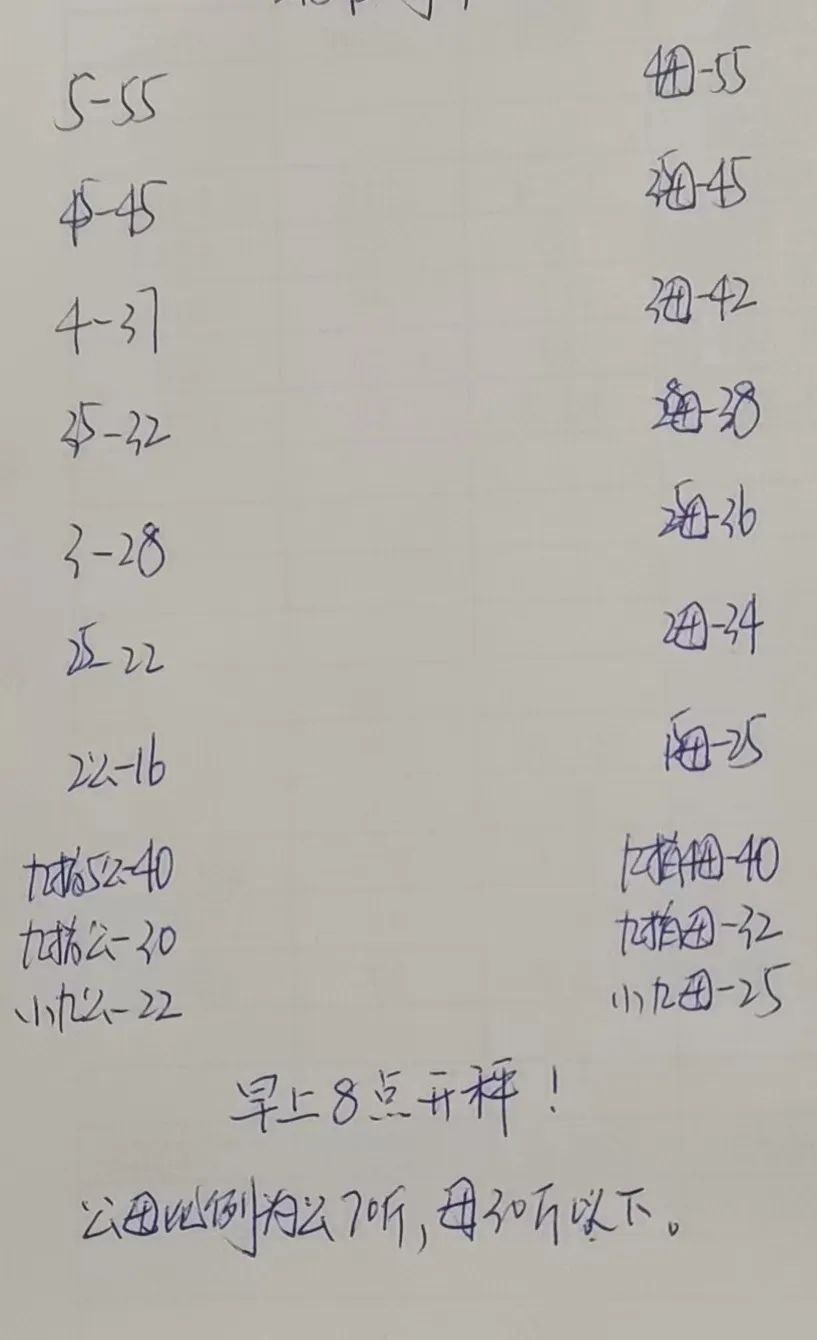 5-55 4母-55
45-45 35母-45
4-37 3母-42
35-32 28母-38
3-28 25母-36
25-22 2母-34
2公-16 15母-25
九指5公-40 九指4母-40
九指公-30 九指母-32
小九公-22 小九母-25
早上8点开秤！
公母比例为公70斤，母30斤以下。